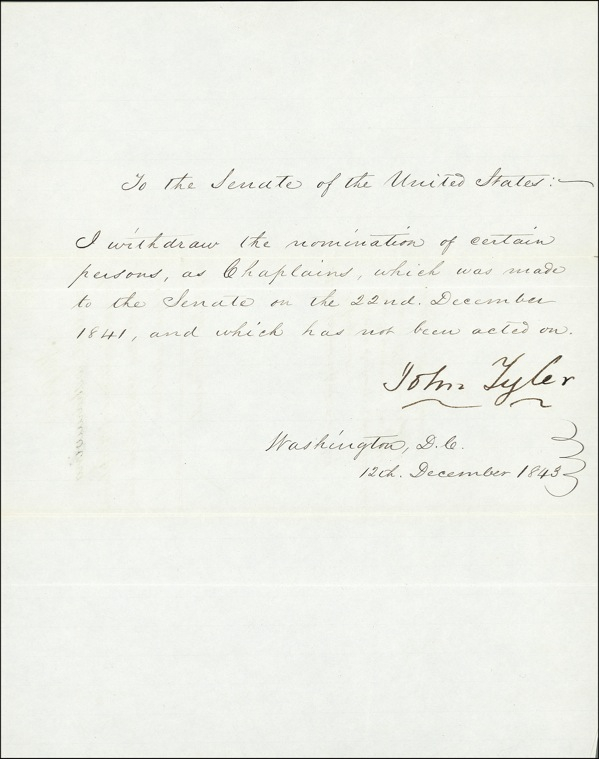 To the Senate of the United States:
I withdraw the nomination of certain
persons, as Chaplains, which was made
to the Senate on the 22nd. December
1841, and which has not been acted on.
John Tyler
Washington, D.C.
12th. December 1843